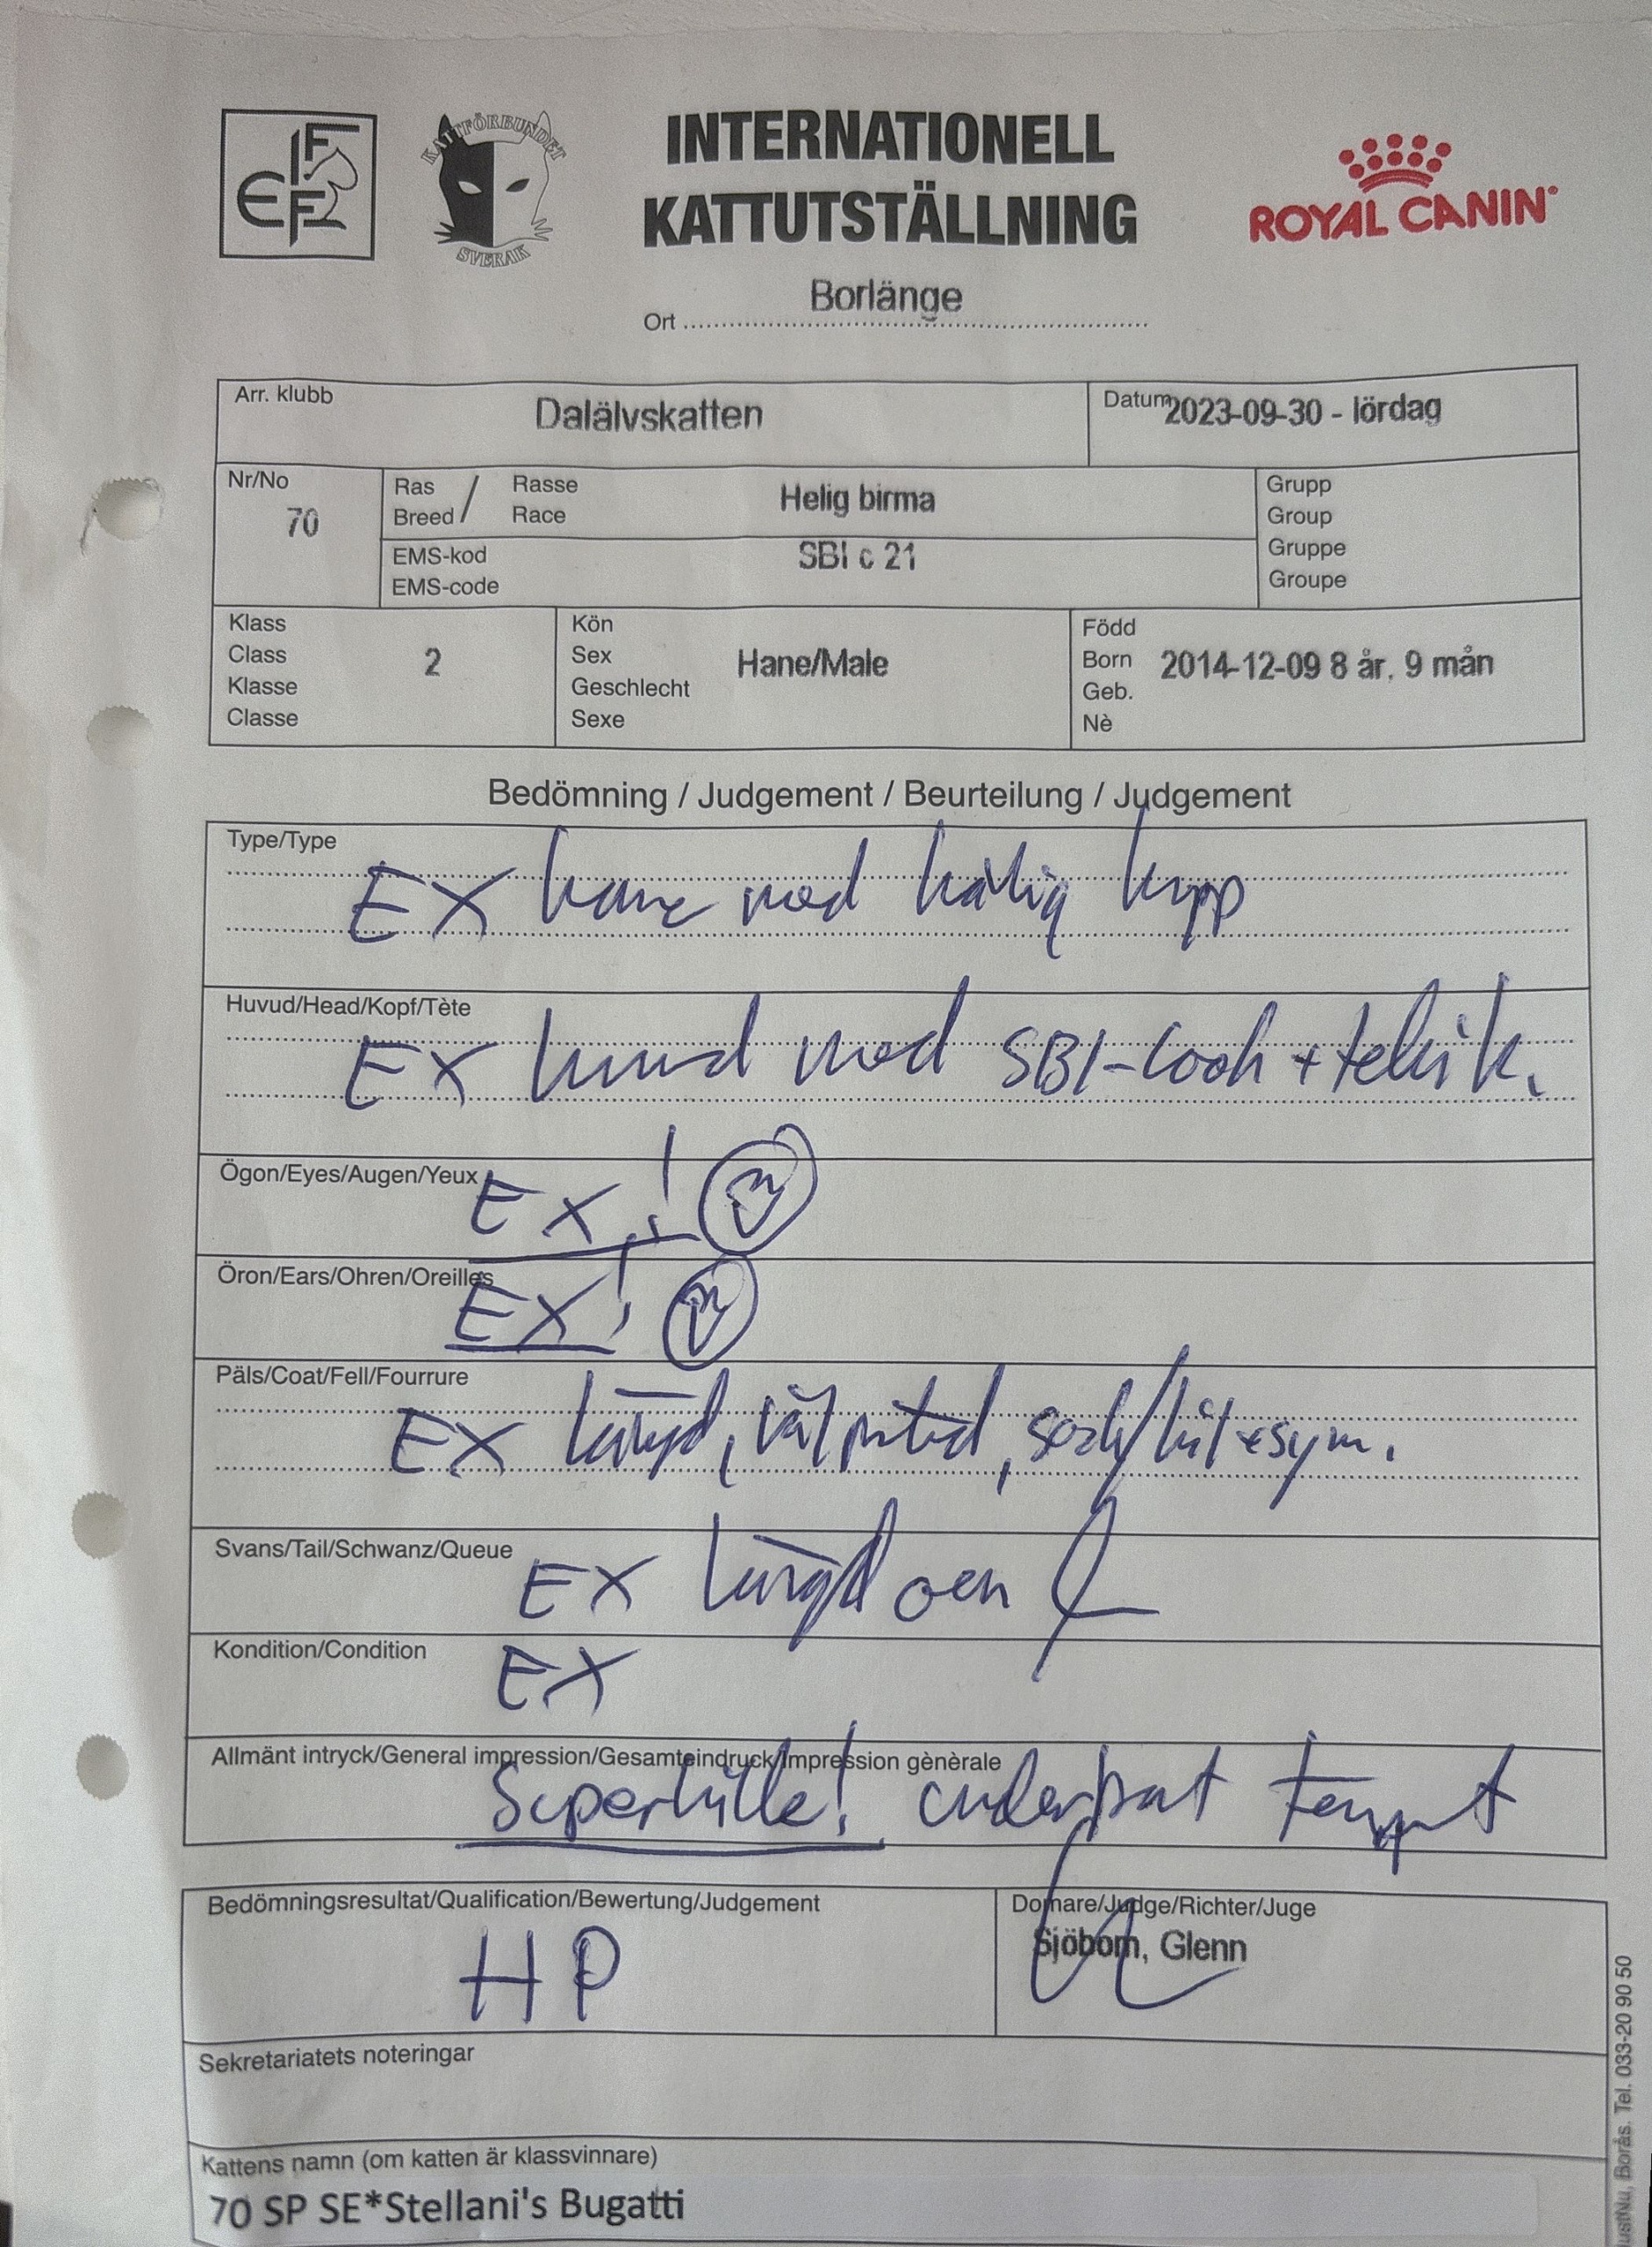 FIFE
KATTFÖRBUNDET
SVERAK
INTERNATIONELL
KATTUTSTÄLLNING
ROYAL CANIN
Ort Borlänge
Arr. klubb Dalälvskatten
Datum 2023-09-30 - lördag
Nr/No 70
Ras / Rasse
Breed / Race
Helig birma
EMS-kod
EMS-code
SBI c 21
Grupp
Group
Gruppe
Groupe
Klass
Class
Klasse
Classe
2
Kön
Sex
Geschlecht
Sexe
Hane/Male
Född
Born
Geb.
Nè
2014-12-09 8 år, 9 mån
Bedömning / Judgement / Beurteilung / Judgement
Type/Type
EX hane med härlig kropp
Huvud/Head/Kopf/Tète
EX huvud med SBI-look +
Ögon/Eyes/Augen/Yeux
EX!
Öron/Ears/Ohren/Oreilles
EX!
Päls/Coat/Fell/Fourrure
EX längd, välprep, sym.
Svans/Tail/Schwanz/Queue
EX längd och
Kondition/Condition
EX
Allmänt intryck/General impression/Gesamteindruck/Impression gènèrale
Superkille! underbart
Bedömningsresultat/Qualification/Bewertung/Judgement
HP
Domare/Judge/Richter/Juge
Sjöbom, Glenn
Sekretariatets noteringar
Kattens namn (om katten är klassvinnare)
70 SP SE*Stellani's Bugatti
Borås. Tel. 033-20 90 50